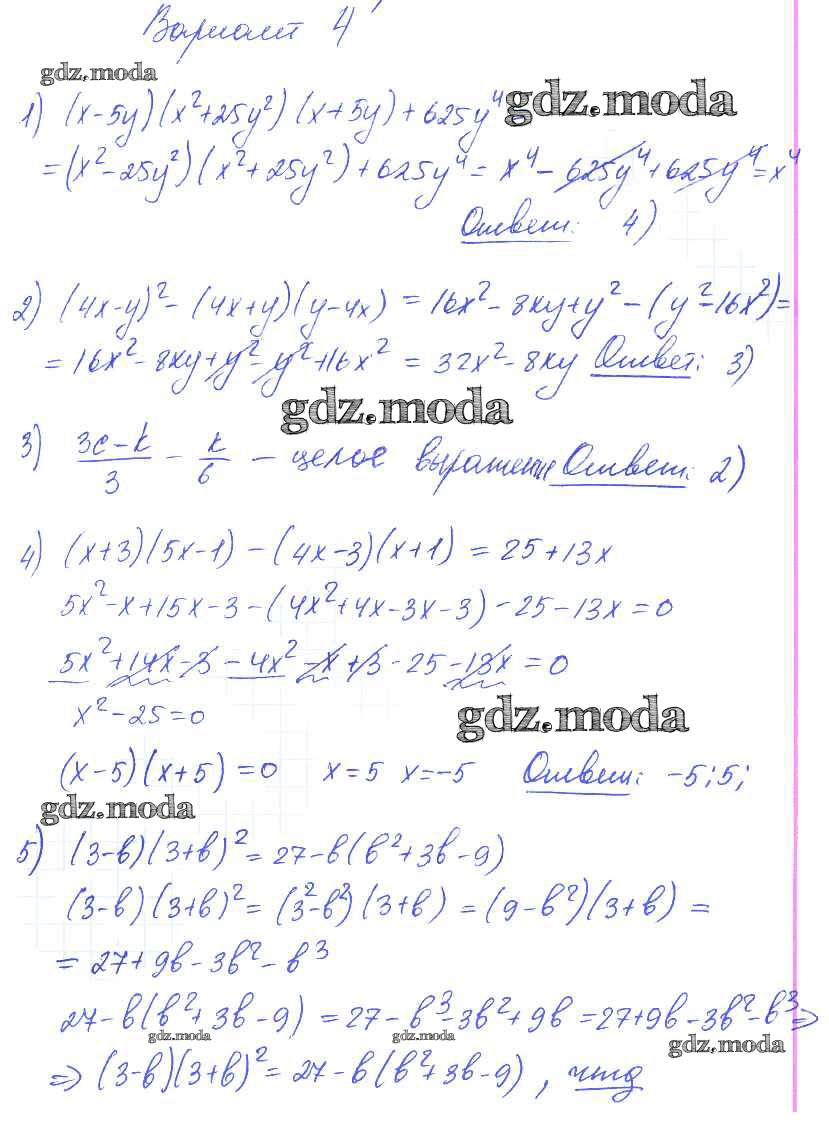 Вариант 4
gdz.moda
1) (x-5y)(x²+25y²)(x+5y)+625y⁴= gdz.moda
=(x²-25y²)(x²+25y²)+625y⁴= x⁴-625y⁴+625y⁴=x⁴
Ответ: 4)
2) (4x-y)²-(4x+y)(y-4x) = 16x²-8xy+y²-(y²-16x²)=
= 16x²-8xy+y²-y²+16x² = 32x²-8xy Ответ: 3)
gdz.moda
3) (3c-k)/3 - k/6 - целое выражение Ответ: 2)
4) (x+3)(5x-1)-(4x-3)(x+1) = 25+13x
5x²-x+15x-3-(4x²+4x-3x-3)-25-13x=0
5x²+14x-3-4x²-x+3-25-13x=0
x²-25=0
gdz.moda
(x-5)(x+5)=0 x=5 x=-5 Ответ: -5;5;
gdz.moda
5) (3-b)(3+b)²=27-b(b²+3b-9)
(3-b)(3+b)²=(3²-b²)(3+b)=(9-b²)(3+b)=
=27+9b-3b²-b³
27-b(b²+3b-9)=27-b³-3b²+9b=27+9b-3b²-b³⇒
gdz.moda gdz.moda gdz.moda
⇒(3-b)(3+b)²=27-b(b²+3b-9), чтд